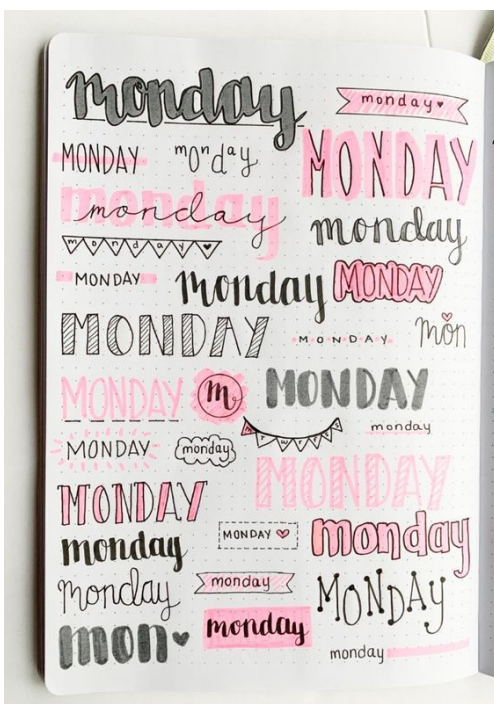 monday
monday♥
MONDAY
monday
MONDAY
monday
monday
monday♥
MONDAY
monday
MONDAY
MONDAY
M·O·N·D·A·Y
mon
MONDAY
m
MONDAY
monday
MONDAY
monday
MONDAY
MONDAY
MONDAY ♥
monday
monday
monday
monday
MONDAY
mon♥
monday
monday